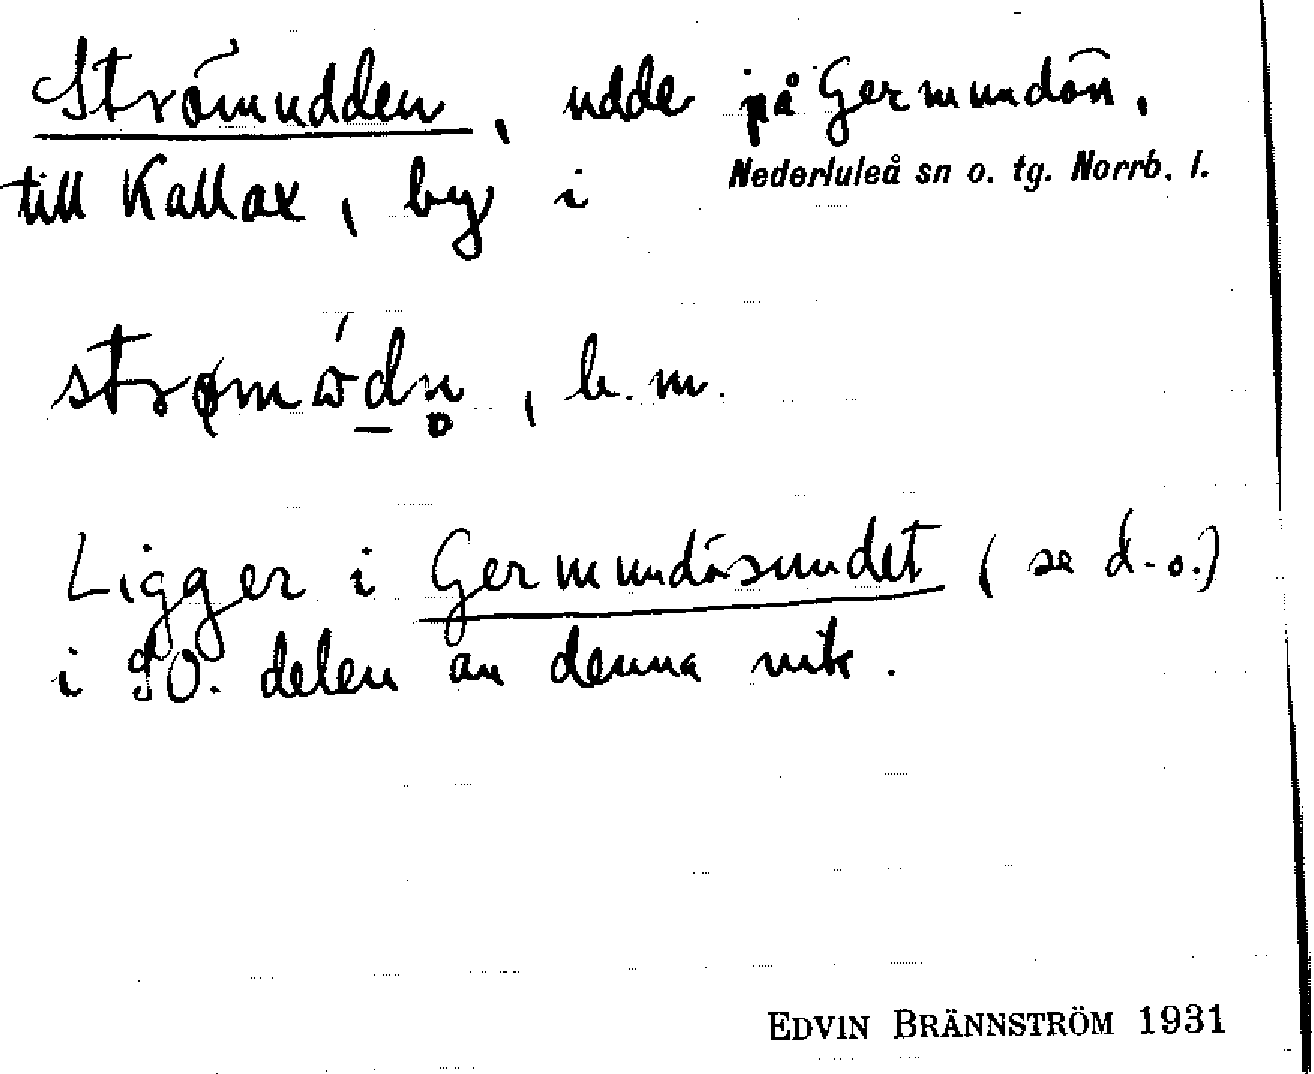 Strömudden, udde på Germundön,
till Kallax, by i Nederluleå sn o. tg. Norrb. l.
strømὼdn̥, b. m.
Ligger i Germundösundet (se d. o.)
i SO. delen av denna vik.
EDVIN BRÄNNSTRÖM 1931